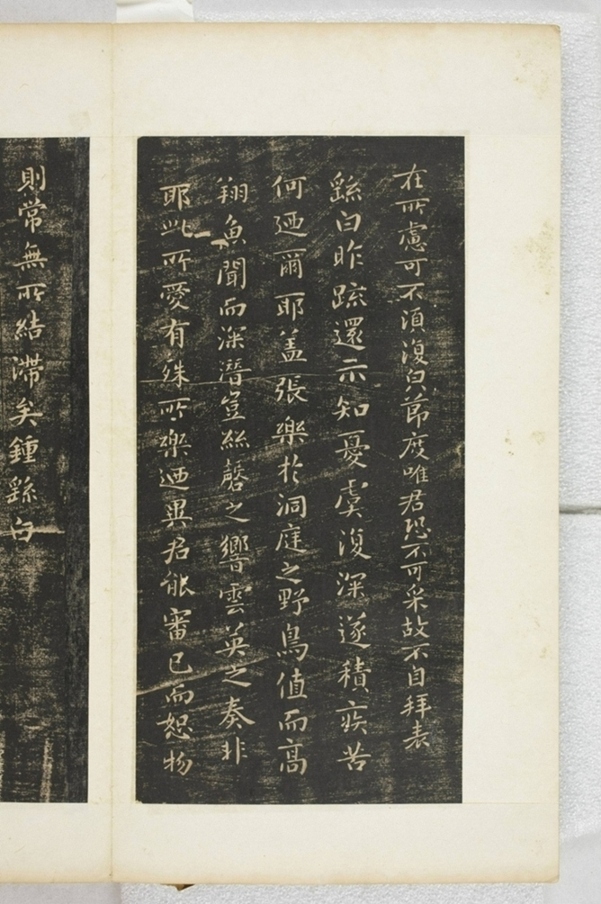 在所慮可不須復皃節度唯君恐不可采故不自拜表
繇白昨疏還示知憂虞復深遂積疾苦
何迺爾耶盖張樂於洞庭之野鳥值而高
翔魚聞而深潛豈絲磬之響雲英之奏非
耶此所愛有殊所樂迺異君能審己而恕物
則常無所結滯矣鍾繇白